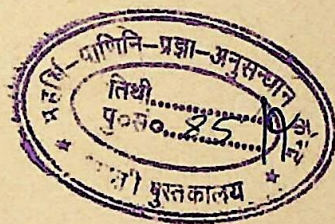 महर्षि-पाणिनि-प्रज्ञा-अनुसन्धान
तिथी..............
पु०सं०..85..
पुस्तकालय